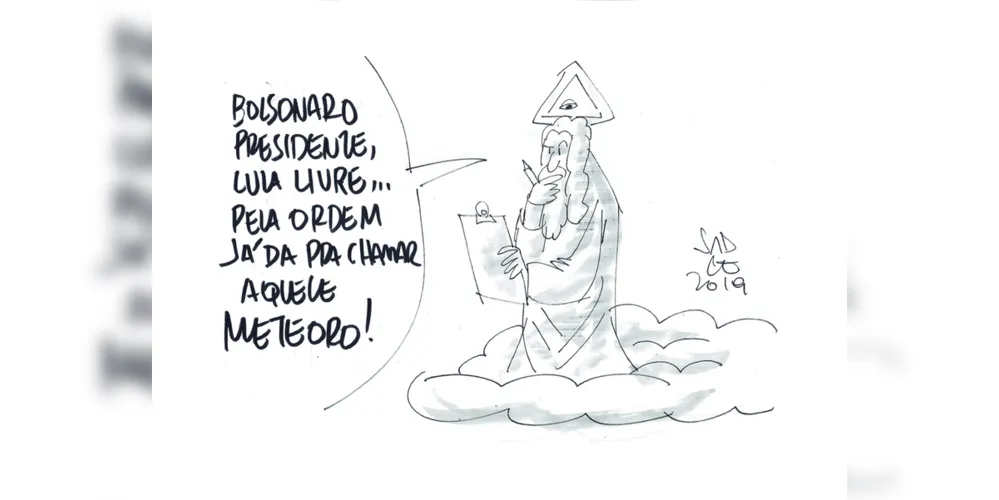 BOLSONARO
PRESIDENTE,
LULA LIVRE...
PELA ORDEM
JÁ DA PRA CHAMAR
AQUELE
METEORO!
2019